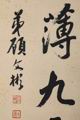 薄九
弟顧文彬